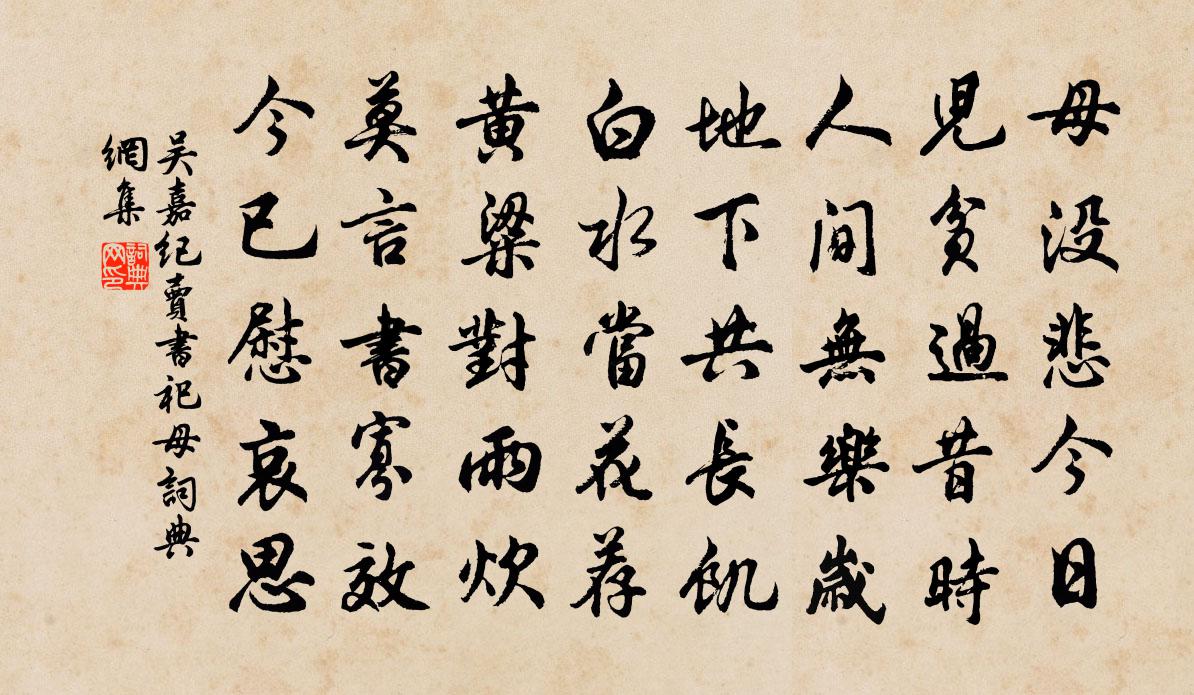 母没悲今日
児貧過昔時
人間無樂歲
地下共長飢
白水當花荐
黄粱對雨炊
莫言書寡效
今已慰哀思
吴嘉紀賣書祀母詞典
網集
詞典
网印